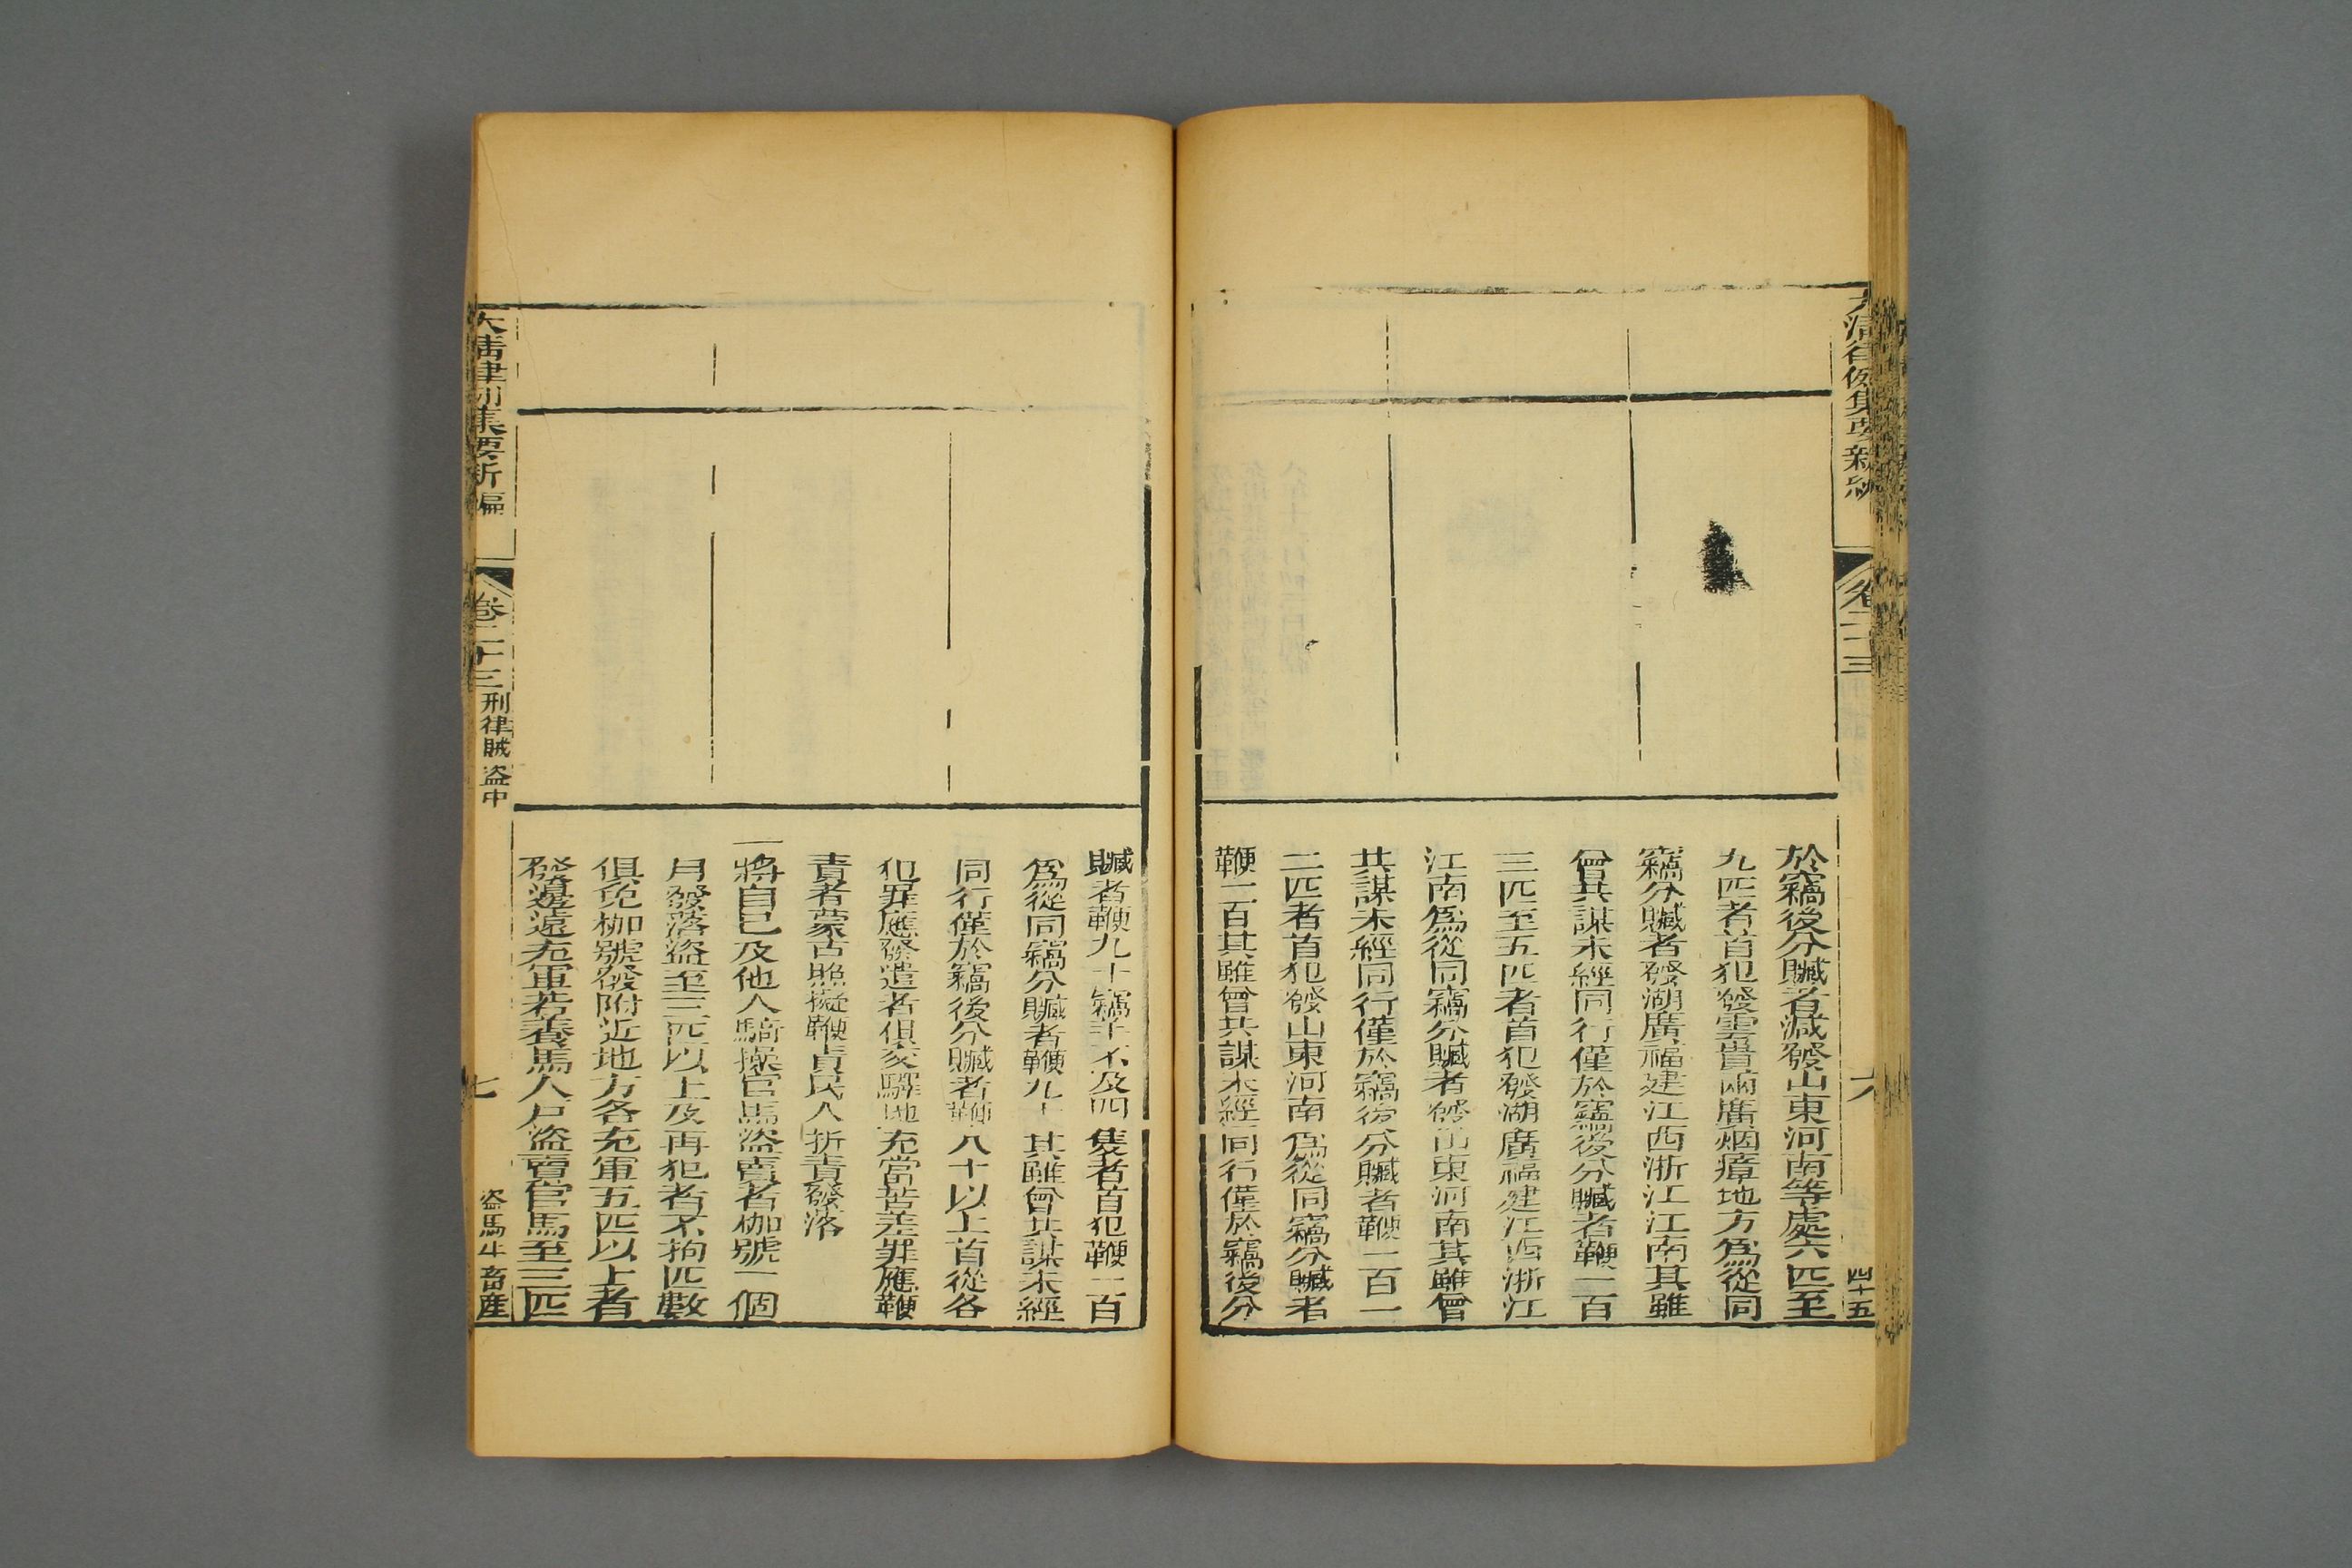 大清律例集要新編
卷二十三
六
四十五
於竊後分贓者減發山東河南等處六匹至
九匹者首犯發雲貴兩廣烟瘴地方爲從同
竊分贓者發湖廣福建江西浙江江南其雖
曾共謀未經同行僅於竊後分贓者鞭一百
三匹至五匹者首犯發湖廣福建江西浙江
江南爲從同竊分贓者發山東河南其雖曾
共謀未經同行僅於竊後分贓者鞭一百一
二匹者首犯發山東河南爲從同竊分贓者
鞭一百其雖曾共謀未經同行僅於竊後分
贓者鞭九十竊羊不及四隻者首犯鞭一百
爲從同竊分贓者鞭九十其雖曾共謀未經
同行僅於竊後分贓者鞭八十以上首從各
犯罪應發遣者俱交驛地充當苦差罪應鞭
責者蒙古照擬鞭責民人折責發落
一將自已及他人騎操官馬盜賣者枷號一個
月發落盜至三匹以上及再犯者不拘匹數
俱免枷號發附近地方各充軍五匹以上者
發邊遠充軍若養馬人戶盜賣官馬至三匹
大清律例集要新編
卷二十三
刑律賊盜中
七
盜馬牛畜產